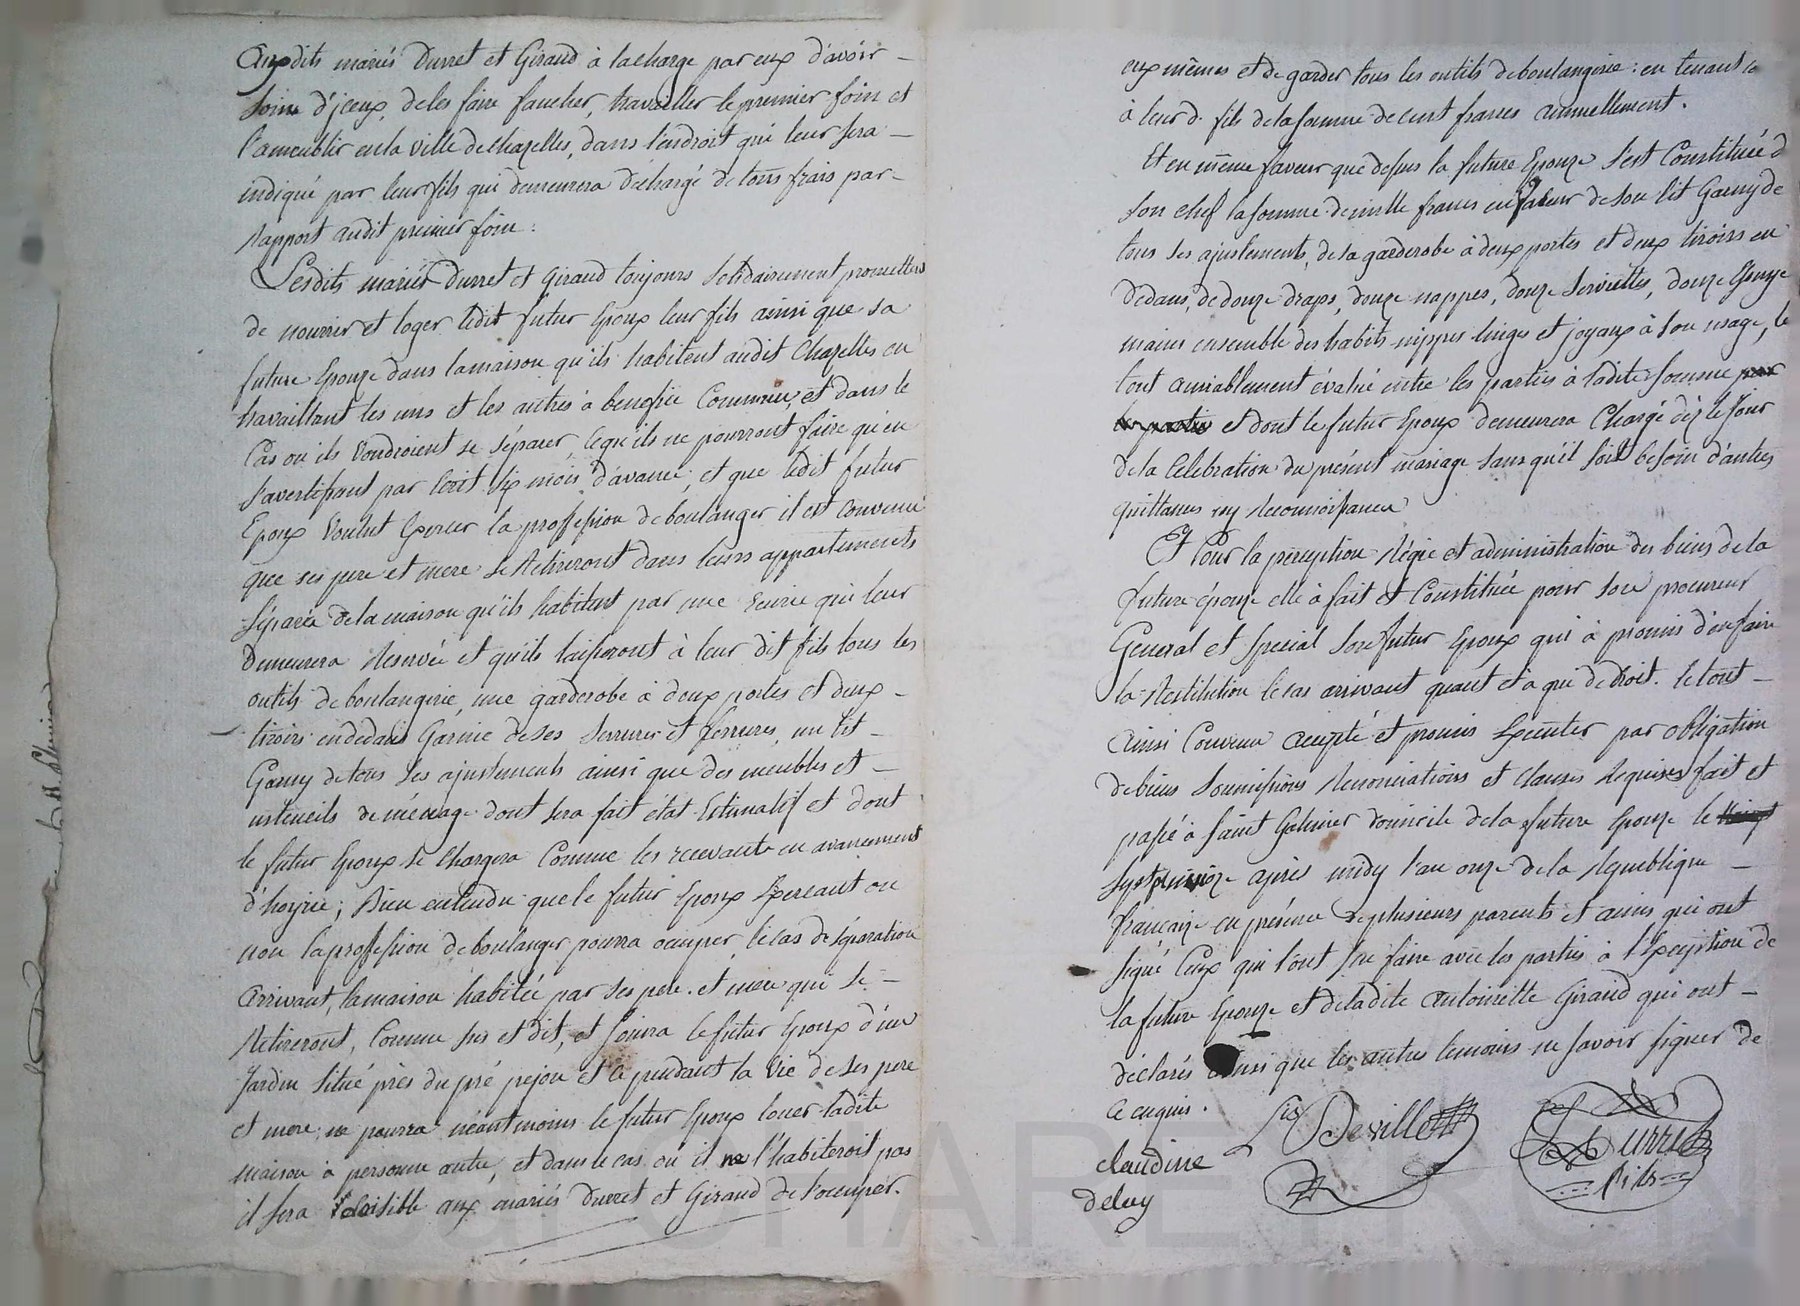 auxdits mariés Durret et Giraud à la charge par eux d'avoir
soin d'jceux, de les faire faucher, travailler le premier foin et
l'ameublir en la ville de chazelles, dans l'endroit qui leur sera
indiqué par leur fils qui demeurera déchargé de tous frais par
rapport audit premier foin :
Lesdits mariés Durret et Giraud toujours solidairement promettent
de nourrir et loger ledit futur Epoux leur fils ainsi que sa
future Epouze dans la maison qu'ils habitent audit Chazelles en
travaillant les uns et les autres à benefice Commun, et dans le
Cas ou ils voudroient se séparer ce qu'ils ne pourront faire qu'en
s'avertissant par écrit six mois d'avance, et que ledit futur
Epoux voulut Exercer la proffession de boulanger, il est convenu
que ses pere et mere se retireront dans leurs appartements
séparés de la maison qu'ils habitent par une écurie qui leur
demeurera réservée et qu'ils laisseront à leur dit fils tous les
outils de boulangerie, une garderobe à deux portes et deux
tiroirs en dedans Garnie de ses serrures et ferrures, un lit
Garny de tous ses ajustements ainsi que des meubles et
ustencils de ménage dont sera fait état Estimatif et dont
le futur Epoux se Chargera Comme les recevant en avancement
d'hoyrie ; Bien entendu que le futur Epoux Exercant ou
non la proffession de boulanger pourra occuper, le cas de séparation
arrivant, la maison habitée par ses pere et mere qui se
retireront, Comme sus est dit, et jouira le futur Epoux d'un
Jardin situé près du pré pejou et ce pendant la vie de ses pere
et mere ; ne pourra néantmoins le futur Epoux louer ladite
maison à personne autre, et dans le cas ou il ne l'habiteroit pas
il sera loisible aux mariés Durret et Giraud de l'occuper.
eux mêmes et de garder tous les outils de boulangerie : en tenant
à leur d. fils de la somme de cent francs annuellement.
Et en même faveur que dessus la future Epouze s'est Constituée d
son chef la somme de mille francs en valeur de son lit Garny de
tous ses ajustements, de sa garderobe à deux portes et deux tiroirs en
dedans, de douze draps, douze nappes, douze serviettes, douze Essuye
mains ensemble des habits nippes linges et joyaux à son usage, le
tout amiablement évalué entre les parties à ladite somme
et dont le futur Epoux demeurera Chargé dèz le jour
de la Celebration du présent mariage sans qu'il soit besoin d'autres
quittances ny reconnoissances
Et Pour la perception régie et administration des biens de la
future épouze elle à fait et Constitué pour son procureur
General et special son futur Epoux qui à promis d'en faire
la restitution le cas arrivant quant et à qui de droit. le tout
ainsi Convenu accepté et promis Exécuter par obligation
de biens soumissions renonciations et clauses requises fait et
passé à saint Galmier domicile de la future Epouze le
après midy l'an onze de la republique
française en présence de plusieurs parents et amis qui ont
signé Ceux qui l'ont sçu faire avec les parties à l'Exception de
la future Epouze et de ladite antoinette Giraud qui ont
déclarés ainsi que les autres temoins ne savoir signer de
ce enquis.
Deville
Durret
fils
claudine
deluy